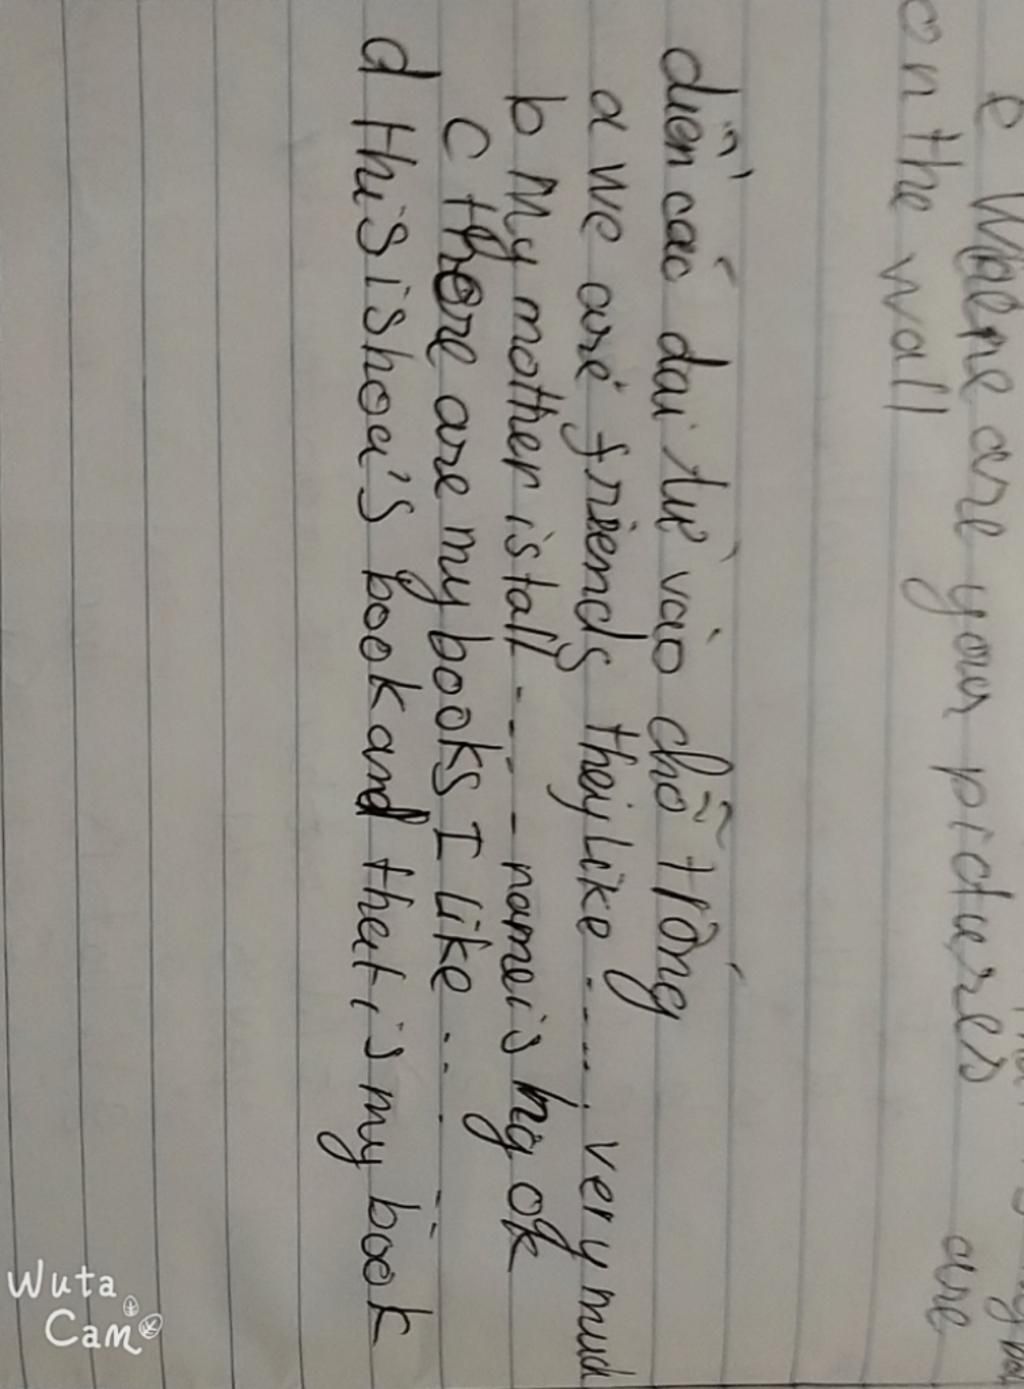 e Where are your pictures are
on the wall
điền các dại từ vào chỗ trống
a we are friends they like ..... very much
b My mother is tall ---- name is ngok
c there are my books I like ......
d this is hoa's book and that is my book
Wuta
Cam